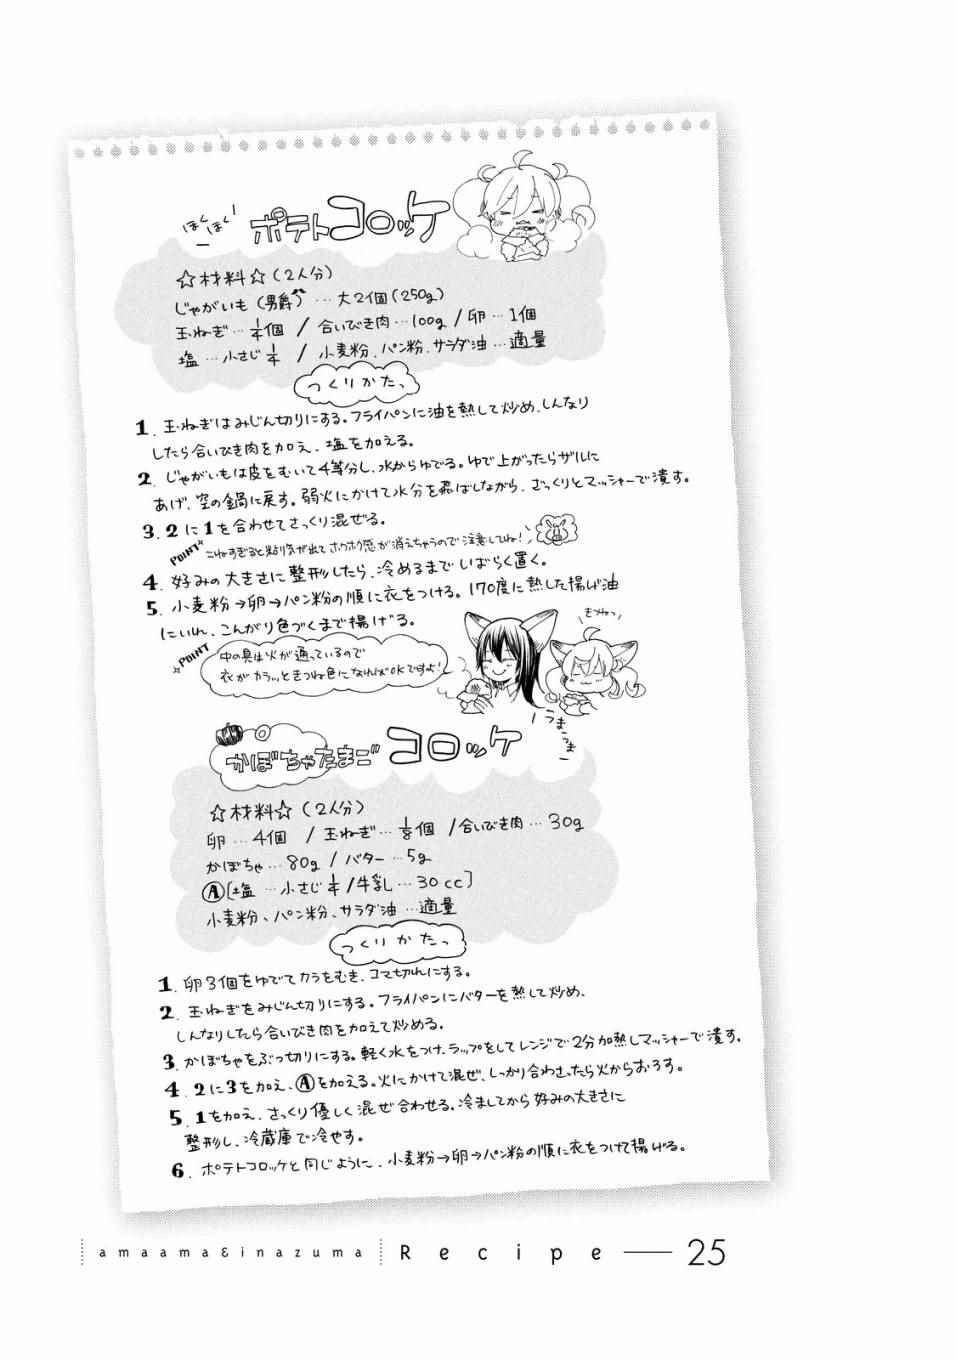 ほくほく!
ポテトコロッケ
☆材料☆(2人分)
じゃがいも(男爵)…大2個(250g)
玉ねぎ…1/4個 / 合いびき肉…100g / 卵…1個
塩…小さじ1/4 / 小麦粉、パン粉、サラダ油…適量
つくりかた
1. 玉ねぎはみじん切りにする。フライパンに油を熱して炒め、しんなり
したら合いびき肉を加え、塩を加える。
2. じゃがいもは皮をむいて4等分し、水からゆでる。ゆで上がったらザルに
あげ、空の鍋に戻す。弱火にかけて水分を飛ばしながら、ざっくりとマッシャーで潰す。
3. 2に1を合わせてさっくり混ぜる。
POINT こねすぎると粘り気が出てホクホク感が消えちゃうので注意してね!
4. 好みの大きさに整形したら、冷めるまでしばらく置く。
5. 小麦粉→卵→パン粉の順に衣をつける。170度に熱した揚げ油
にいれ、こんがり色づくまで揚げる。
POINT 中の具は火が通っているので
衣がカラッときつね色になればOKですよ!
きつねっ
うまうま
かぼちゃたまごコロッケ
☆材料☆(2人分)
卵…4個 / 玉ねぎ…1/8個 / 合いびき肉…30g
かぼちゃ…80g / バター…5g
Ⓐ[塩…小さじ1/4 / 牛乳…30cc]
小麦粉、パン粉、サラダ油…適量
つくりかた
1. 卵3個をゆでてカラをむき、コマ切れにする。
2. 玉ねぎをみじん切りにする。フライパンにバターを熱して炒め、
しんなりしたら合いびき肉を加えて炒める。
3. かぼちゃをぶつ切りにする。軽く水をつけ、ラップをしてレンジで2分加熱しマッシャーで潰す。
4. 2に3を加え、Ⓐを加える。火にかけて混ぜ、しっかり合わさったら火からおろす。
5. 1を加え、さっくり優しく混ぜ合わせる。冷ましてから好みの大きさに
整形し、冷蔵庫で冷やす。
6. ポテトコロッケと同じように、小麦粉→卵→パン粉の順に衣をつけて揚げる。
amaama&inazuma Recipe — 25